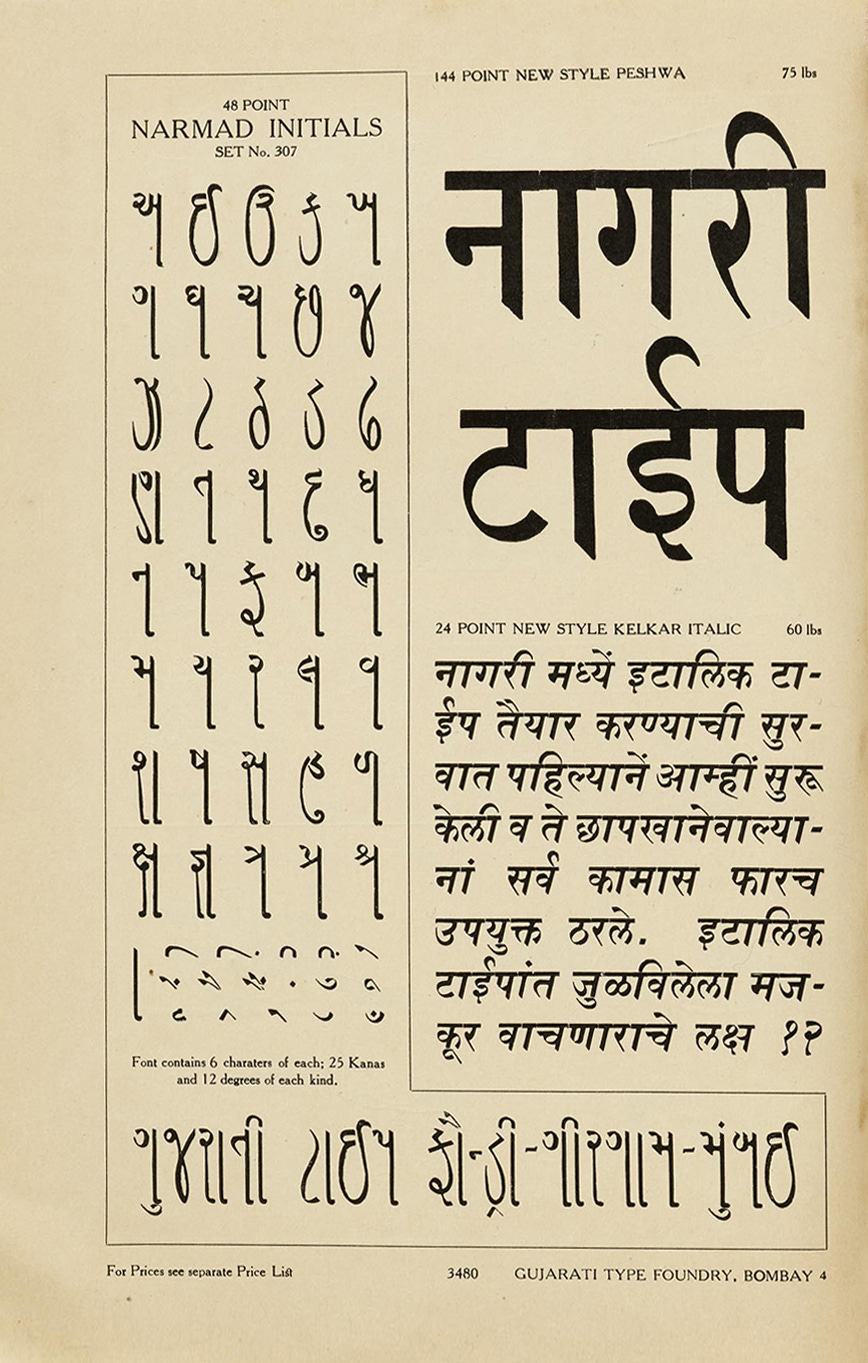 48 POINT
NARMAD INITIALS
SET No. 307
અ ઈ ઉ ક ખ
ગ ઘ ચ છ જ
ઝ ટ ઠ ડ ઢ
ણ ત થ દ ધ
ન પ ફ બ ભ
મ ય ર લ વ
શ ષ સ હ ળ
ક્ષ જ્ઞ ત્ર પ્ર શ્ર
Font contains 6 charaters of each; 25 Kanas
and 12 degrees of each kind.
144 POINT NEW STYLE PESHWA 75 lbs
नागरी
टाईप
24 POINT NEW STYLE KELKAR ITALIC 60 lbs
नागरी मध्यें इटालिक टा-
ईप तैयार करण्याची सुर-
वात पहिल्यानें आम्हीं सुरू
केली व ते छापखानेवाल्या-
नां सर्व कामास फारच
उपयुक्त ठरले. इटालिक
टाईपांत जुळविलेला मज-
कूर वाचणाराचे लक्ष १२
ગુજરાતી ટાઈપ ફૌન્ડ્રી-ગીરગામ-મુંબઈ
For Prices see separate Price List
3480 GUJARATI TYPE FOUNDRY, BOMBAY 4